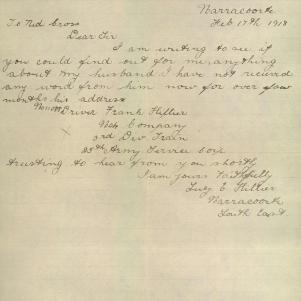 Narracoorte
Feb 17th 1918
To Red Cross
Dear Sir
I am writing to see if
you could find out for me, anything
about my husband I have not recieved
any word from him now for over four
months his address
Driver Frank Hillier
Company
3rd Div Train
25th Army Service Corps
trusting to hear from you shortly
I am yours Faithfully
Lucy E Hillier
Narracoorte
South East